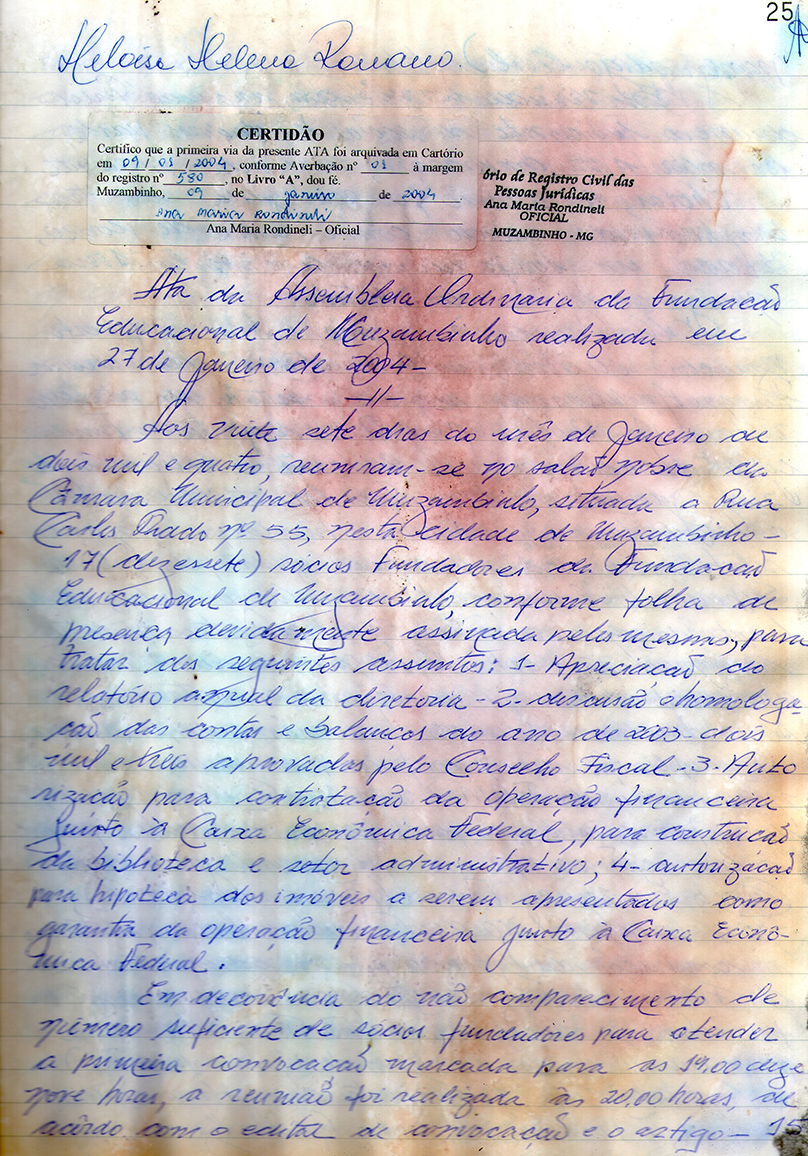 25
Heloisa Helena Romano.
CERTIDÃO
Certifico que a primeira via da presente ATA foi arquivada em Cartório
em 09/01/2004, conforme Averbação nº 01 à margem
do registro nº 580, no Livro "A", dou fé.
Muzambinho, 09 de janeiro de 2004
Ana Maria Rondineli
Ana Maria Rondineli – Oficial
ório de Registro Civil das
Pessoas Jurídicas
Ana Maria Rondineli
OFICIAL
MUZAMBINHO - MG
Ata da Assembleia Ordinaria da Fundacão
Educacional de Muzambinho realizada em
27 de Janeiro de 2004-
-//-
Aos vinte sete dias do mês de Janeiro de
dois mil e quatro, reuniram-se no salão nobre da
Câmara Municipal de Muzambinho, situada a Rua
Carlos Prado nº 55, nesta cidade de Muzambinho-
17 (dezessete) sócios Fundadores da Fundacão
Educacional de Muzambinho, conforme folha de
presença devidamente assinada pelos mesmos, para
tratar dos seguintes assuntos: 1- Apreciação do
relatório anual da diretoria - 2- discussão e homologa-
cão das contas e balancos do ano de 2003- dois
mil e três aprovadas pelo Conselho Fiscal - 3- Auto
rização para contratação da operação financeira
junto à Caixa Econômica Federal, para construcão
da biblioteca e setor administrativo; 4- autorizacão
para hipoteca dos imóveis a serem apresentados como
garantia da operação financeira junto à Caixa Econô-
mica Federal.
Em decorência do não comparecimento de
número suficiente de sócios fundadores para atender
a primeira convocacão marcada para as 19,00 deze
nove horas, a reunião foi realizada às 20,00 horas, de
acôrdo com o edital de convocação e o artigo - 15